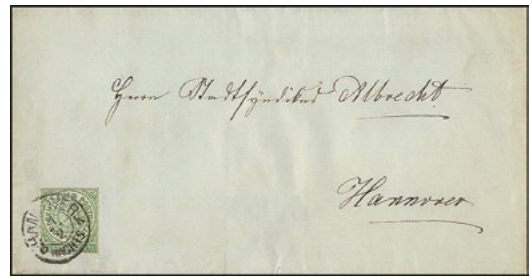 Herrn Stadtsyndikus Albrecht
Hannover